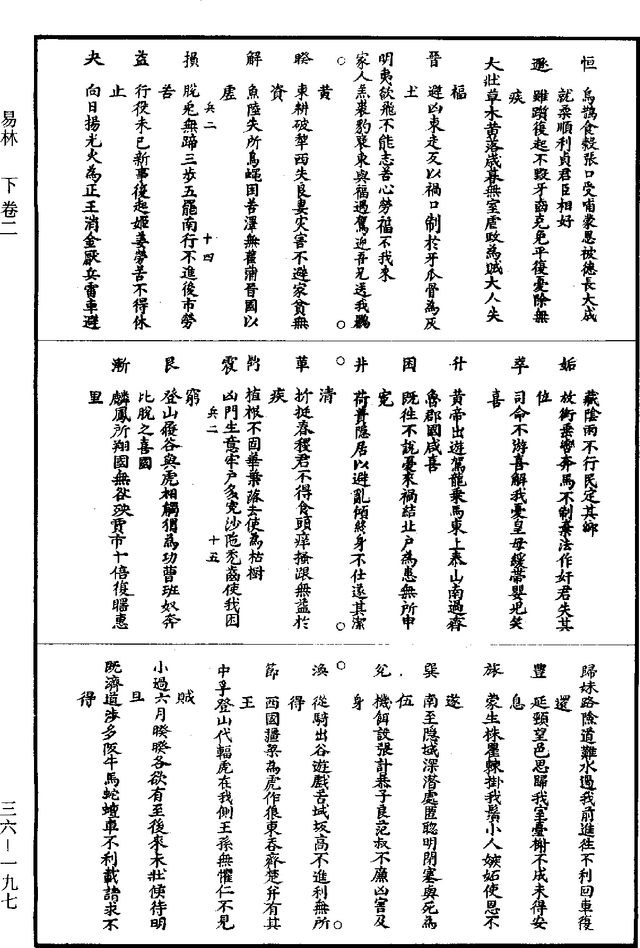 易林　下卷二
恒　烏鵲食穀張口受哺蒙恩被德長大成
就柔順利貞君臣相好
遯　雖躓復起不毀牙齒克免平復憂除無
疾
大壯草木黃落歲暮無室虐政為賊大人失
福
晉　避凶東走反以禍口制於牙爪骨為灰
土
明夷欲飛不能志苦心勞福不我來
家人羔裘豹袪東與福遇駕迎吾兄送我驪
黃
睽　東耕破犂西失良妻灾害不避家貧無
資
解　魚陸失所鳥蠅困苦澤無萑蒲晉國以
虛　兵二　十四
損　脫兔無蹄三步五罷南行不進後市勞
苦
益　行役未已新事復起姬姜勞苦不得休
止
夬　向日揚光火為正王消金厭兵雷車避
藏陰雨不行民定其鄉
姤　放銜乘轡奔馬不制棄法作奸君失其
位
萃　司命不游喜解我憂皇母緩帶嬰兒笑
喜
升　黃帝出遊駕龍乘馬東上泰山南過齊
魯郡國咸喜
困　既往不說憂來禍結北戶為患無所申
寃
井　荷蕢隱居以避亂傾終身不仕遂其潔
清
革　折挺春稷君不得食頭痒搔跟無益於
疾
鼎　植根不固華葉落去使為枯樹
震　凶門生意牢戶多寃沙陁禿齒使我困
窮　兵二　十五
艮　登山履谷與虎相觸猬為功曹班奴奔
比脫之喜國
漸　麟鳳所翔國無咎殃賈市十倍復歸惠
里
歸妹路險道難水遏我前進往不利回車復
還
豐　延頸望邑思歸我室臺榭不成未得安
息
旅　蒙生株瞿棘掛我鬚小人嫉妬使恩不
遂
巽　南至隱域深潜處匿聰明閉塞與死為
伍
兌　機餌設張計暴子良范叔不廉凶害及
身
渙　從騎出谷遊戲苦域坂高不進利無所
得
節　西國彊梁為虎作狼東吞齊楚并有其
王
中孚登山代輻虎在我側王孫無懼仁不見
賊
小過六月睽睽各欲有至後來未壯俟待明
旦
既濟道涉多阪牛馬蛇蟺車不利載請求不
得
三六—一九七